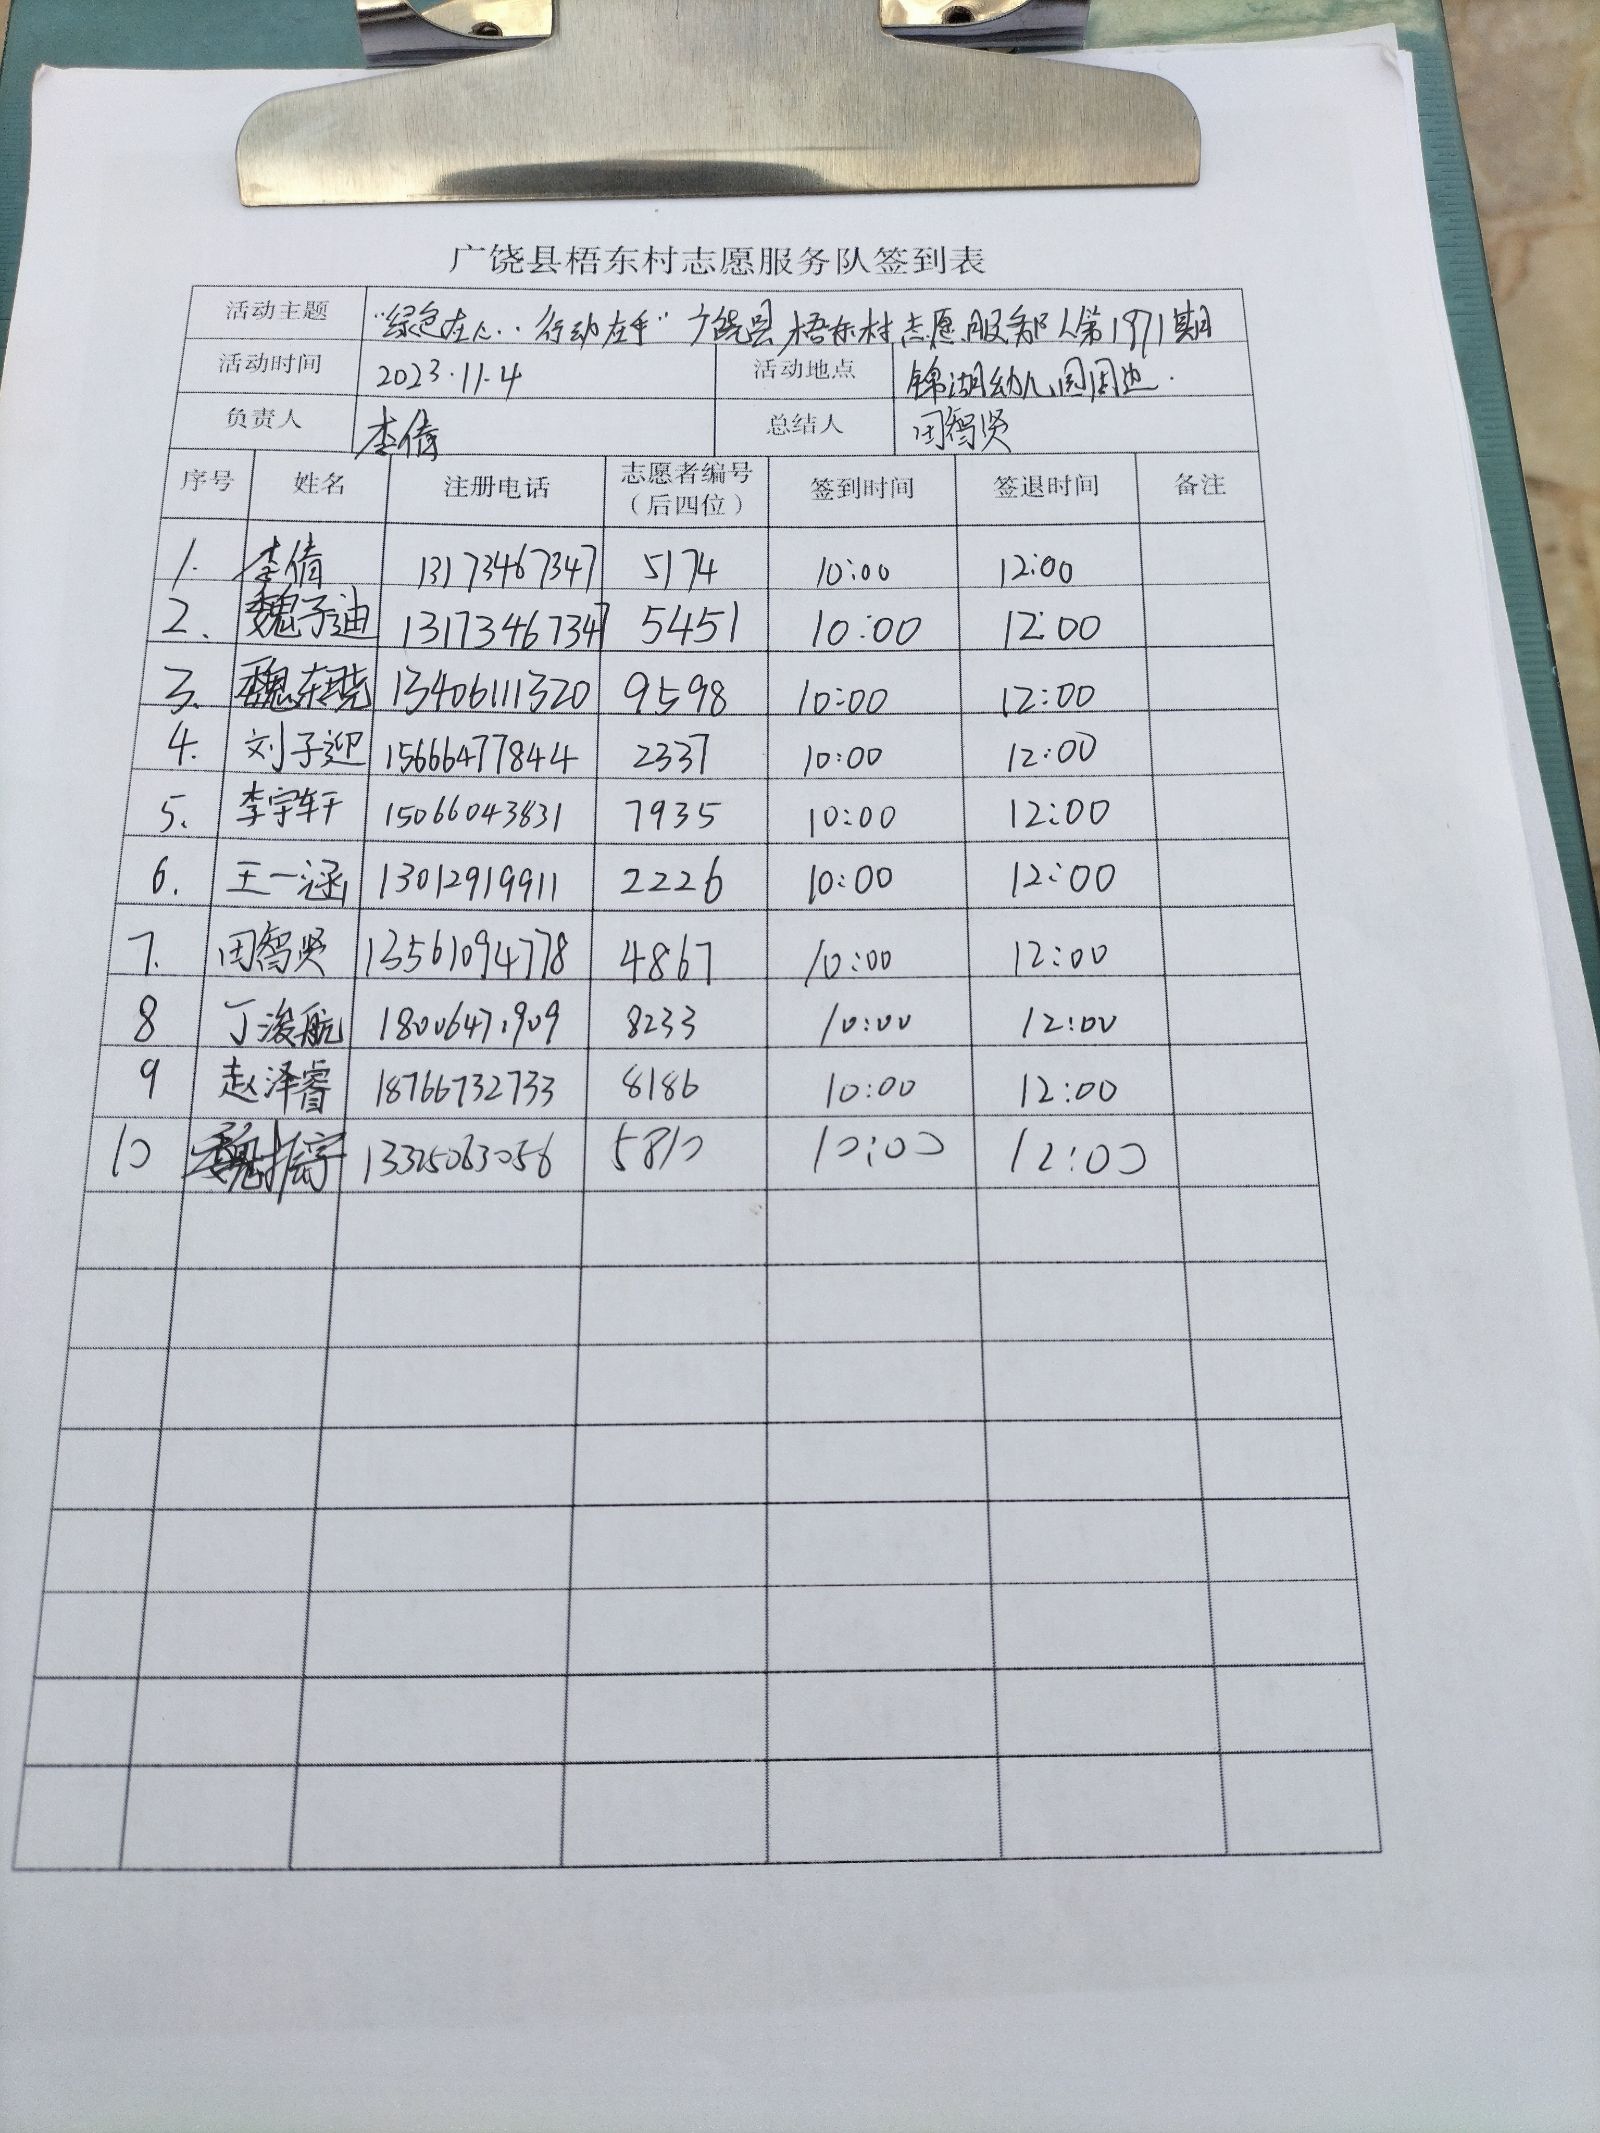 广饶县梧东村志愿服务队签到表
活动主题 "绿色在心··行动在手" 广饶县梧东村志愿服务队第1971期
活动时间 2023.11.4 活动地点 锦湖幼儿园周边.
负责人 李倩 总结人 田智贤
序号 姓名 注册电话 志愿者编号（后四位） 签到时间 签退时间 备注
1. 李倩 13173467347 5174 10:00 12:00
2. 魏子迪 13173467347 5451 10:00 12:00
3. 魏东晓 13406111320 9598 10:00 12:00
4. 刘子迎 15666477844 2337 10:00 12:00
5. 李宇轩 15066043831 7935 10:00 12:00
6. 王一涵 13012919911 2226 10:00 12:00
7. 田智贤 13561094778 4867 10:00 12:00
8 丁浚航 18006471909 8233 10:00 12:00
9 赵泽睿 18766732733 8186 10:00 12:00
10 魏振宇 13325063056 5810 10:00 12:00